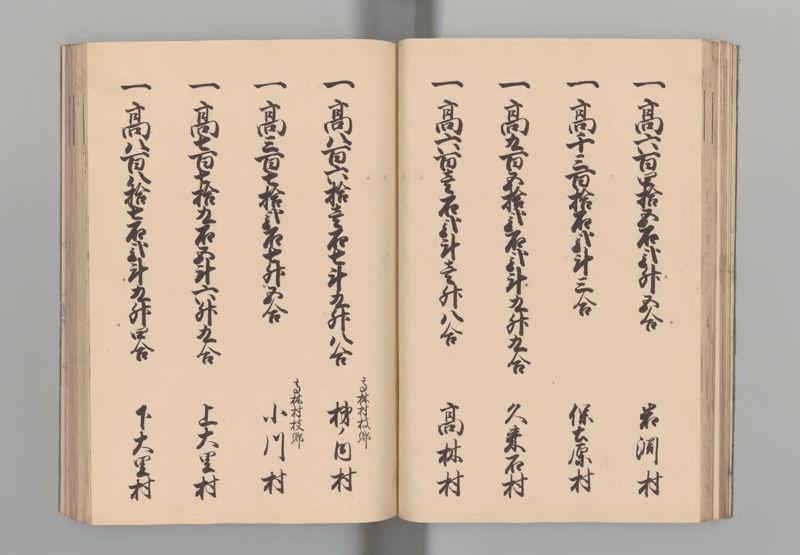 一高六百四拾五石弐升五合 岩淵村
一高千三百拾石弐斗三合 保土原村
一高九百五拾弐石弐斗九升九合 久来石村
一高六百壱石弐斗壱升八合 高林村
一高八百六拾壱石七斗九升八合 高林村枝郷 梯ノ目村
一高三百七拾弐石七升五合 高林村枝郷 小川村
一高七百七拾九石五斗六升九合 上大里村
一高八百八拾七石弐斗九升四合 下大里村